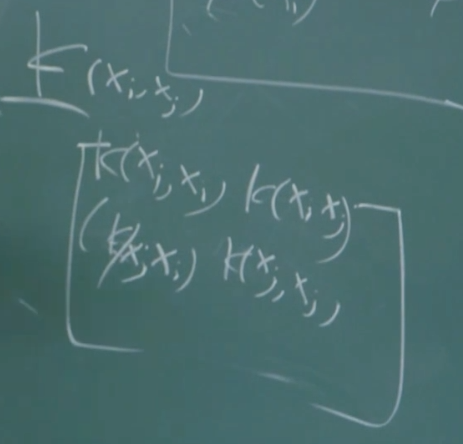 k(x_i, x_j)
k(x_i, x_i) k(x_i, x_j)
k(x_j, x_i) k(x_j, x_j)